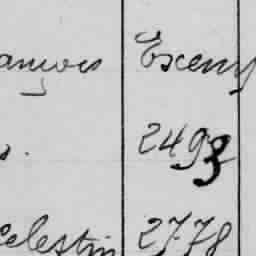 ançois Exem
s. 2493
Celestin 2778